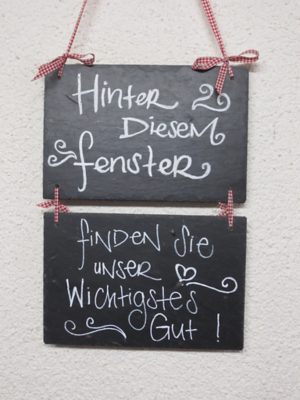 Hinter
Diesem
Fenster
finden Sie
unser
Wichtigstes
Gut !